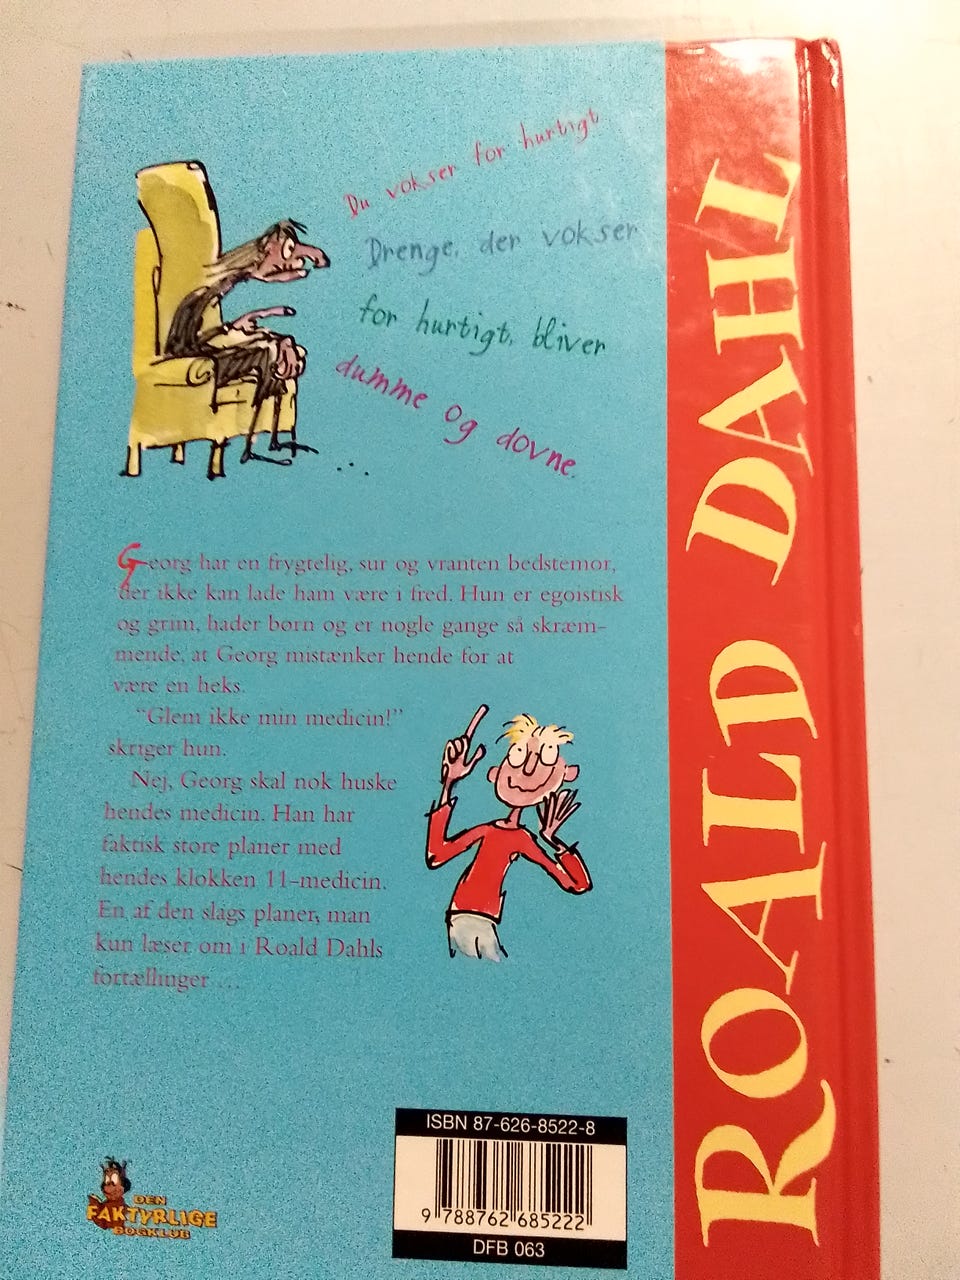 Du vokser for hurtigt
Drenge, der vokser
for hurtigt, bliver
dumme og dovne.
...
Georg har en frygtelig, sur og vranten bedstemor,
der ikke kan lade ham være i fred. Hun er egoistisk
og grim, hader børn og er nogle gange så skræm–
mende, at Georg mistænker hende for at
være en heks.
“Glem ikke min medicin!”
skriger hun.
Nej, Georg skal nok huske
hendes medicin. Han har
faktisk store planer med
hendes klokken 11–medicin.
En af den slags planer, man
kun læser om i Roald Dahls
fortællinger ...
DEN
FAKTYRLIGE
BOGKLUB
ISBN 87-626-8522-8
9 788762 685222
DFB 063
ROALD DAHL